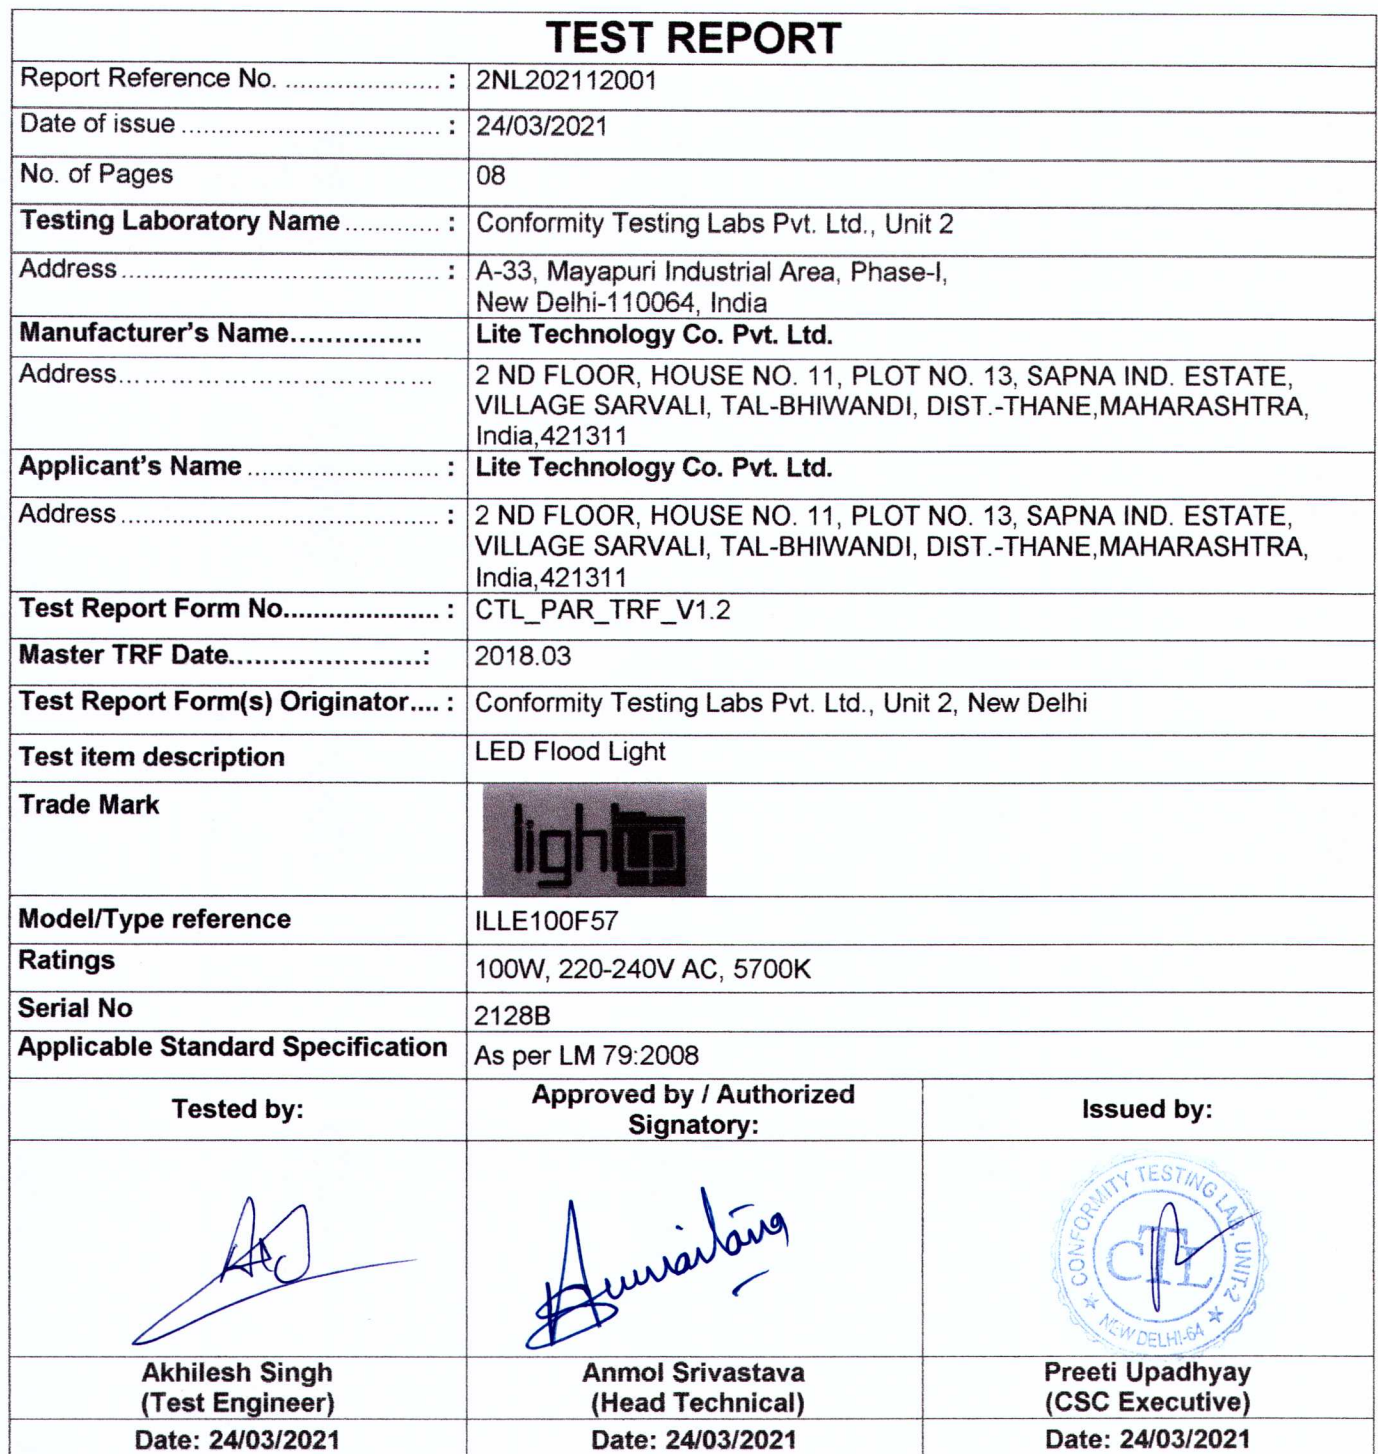 TEST REPORT
Report Reference No. ..................... : 2NL202112001
Date of issue ................................... : 24/03/2021
No. of Pages 08
Testing Laboratory Name ............. : Conformity Testing Labs Pvt. Ltd., Unit 2
Address ........................................... : A-33, Mayapuri Industrial Area, Phase-I,
New Delhi-110064, India
Manufacturer's Name............... Lite Technology Co. Pvt. Ltd.
Address.................................... 2 ND FLOOR, HOUSE NO. 11, PLOT NO. 13, SAPNA IND. ESTATE,
VILLAGE SARVALI, TAL-BHIWANDI, DIST.-THANE,MAHARASHTRA,
India,421311
Applicant's Name .......................... : Lite Technology Co. Pvt. Ltd.
Address ........................................... : 2 ND FLOOR, HOUSE NO. 11, PLOT NO. 13, SAPNA IND. ESTATE,
VILLAGE SARVALI, TAL-BHIWANDI, DIST.-THANE,MAHARASHTRA,
India,421311
Test Report Form No..................... : CTL_PAR_TRF_V1.2
Master TRF Date......................: 2018.03
Test Report Form(s) Originator.... : Conformity Testing Labs Pvt. Ltd., Unit 2, New Delhi
Test item description LED Flood Light
Trade Mark
Model/Type reference ILLE100F57
Ratings 100W, 220-240V AC, 5700K
Serial No 2128B
Applicable Standard Specification As per LM 79:2008
Tested by: Approved by / Authorized Signatory: Issued by:
CONFORMITY TESTING LAB, UNIT-2
CTL
NEW DELHI-64
Akhilesh Singh Anmol Srivastava Preeti Upadhyay
(Test Engineer) (Head Technical) (CSC Executive)
Date: 24/03/2021 Date: 24/03/2021 Date: 24/03/2021